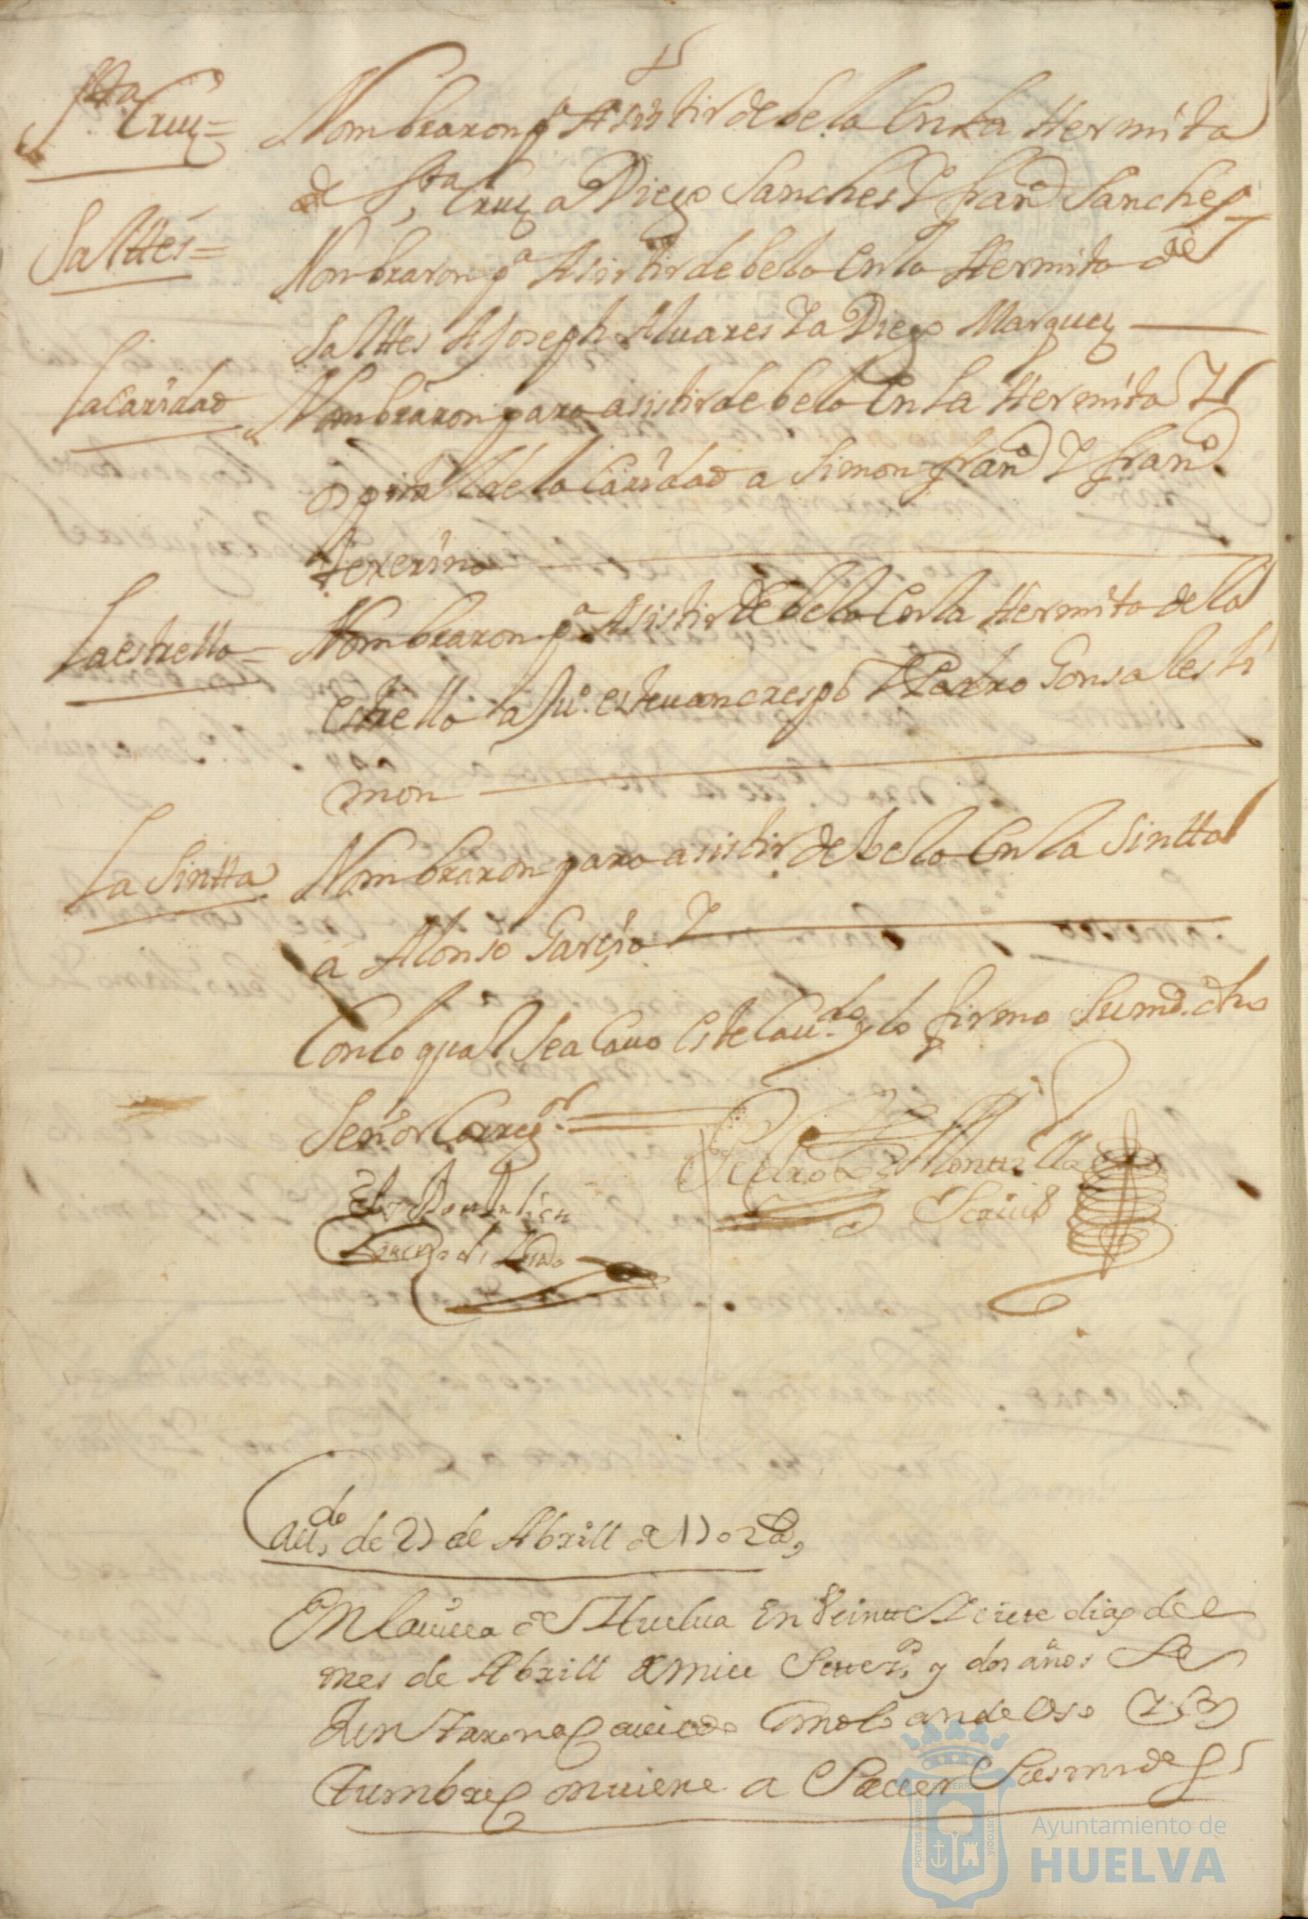 Sta Cruz=
Nombraron pa Asistir de belo en la Hermita
de Sta Cruz a Diego Sanches Y franco Sanches
Saltes=
Nombraron pa Asistir de belo en la Hermita de
Saltes A Joseph Aluares Y a Diego Marquez
La Caridad
Nombraron para asistir de belo en La Hermita Y
ospital de la Caridad a Simon franco Y franco
La estrella=
Nombraron pa Asistir de belo en la Hermita de la
estrella a Juo esteuan crespo Y Pedro Gonsales li
mon
La Sintta
Nombraron para asistir de belo en la Sintta
a Alonso Garçia Y
Con lo qual Sea Cauo este Caudo y lo firmo Su md dho
Señor Corregor=
Pedro de Montilla
Scriuo
Caudo de 27 de Abrill de 1702 as
En la uilla de Huelua En Veinte Y siete dias del
mes de Abrill de mill Settesos y dos años Se
Juntaron a Cauildo Como lo an de Vso Y Cos
tumbre
Ayuntamiento de
HUELVA